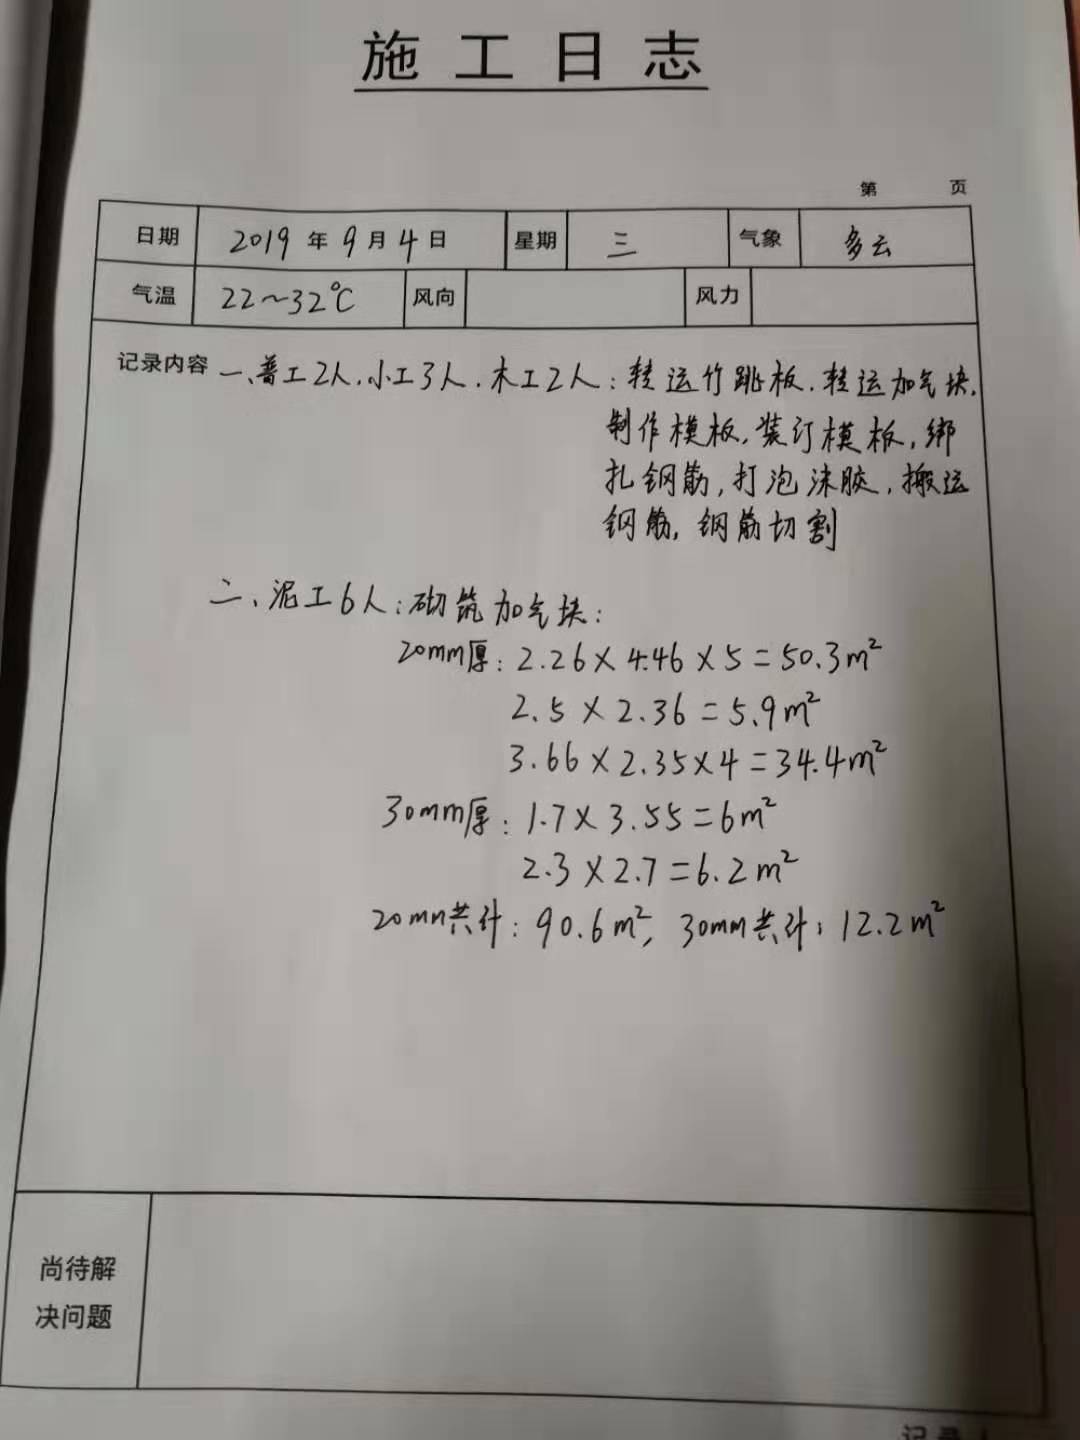 施工日志
第 页
日期 2019年9月4日 星期 三 气象 多云
气温 22～32℃ 风向 风力
记录内容 一、普工2人、小工3人、木工2人：转运竹跳板、转运加气块、
制作模板，装订模板，绑
扎钢筋，打泡沫胶，搬运
钢筋，钢筋切割
二、泥工6人：砌筑加气块：
20mm厚：2.26×4.46×5=50.3m²
2.5×2.36=5.9m²
3.66×2.35×4=34.4m²
30mm厚：1.7×3.55=6m²
2.3×2.7=6.2m²
20mm共计：90.6m²，30mm共计：12.2m²
尚待解
决问题
记录